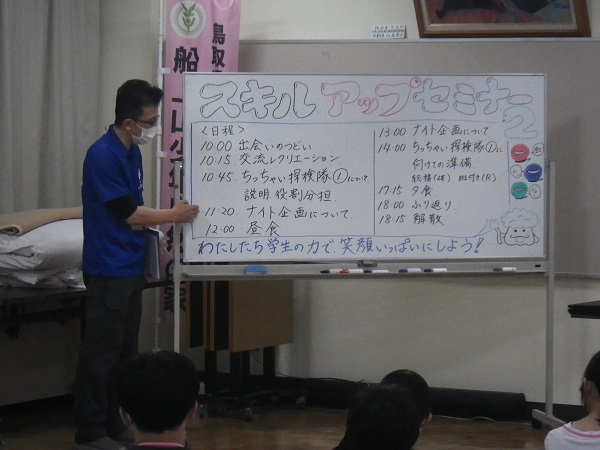 鳥取
船
スキルアップセミナー2
〈日程〉
10:00 出会いのつどい
10:15 交流レクリエーション
10:45 ちっちゃい探検隊①について
説明、役割分担
11:20 ナイト企画について
12:00 昼食
13:00 ナイト企画について
14:00 ちっちゃい探検隊①に
向けての準備
17:15 夕食
18:00 ふり返り
18:15 解散
わたしたち学生の力で、笑顔いっぱいにしよう!